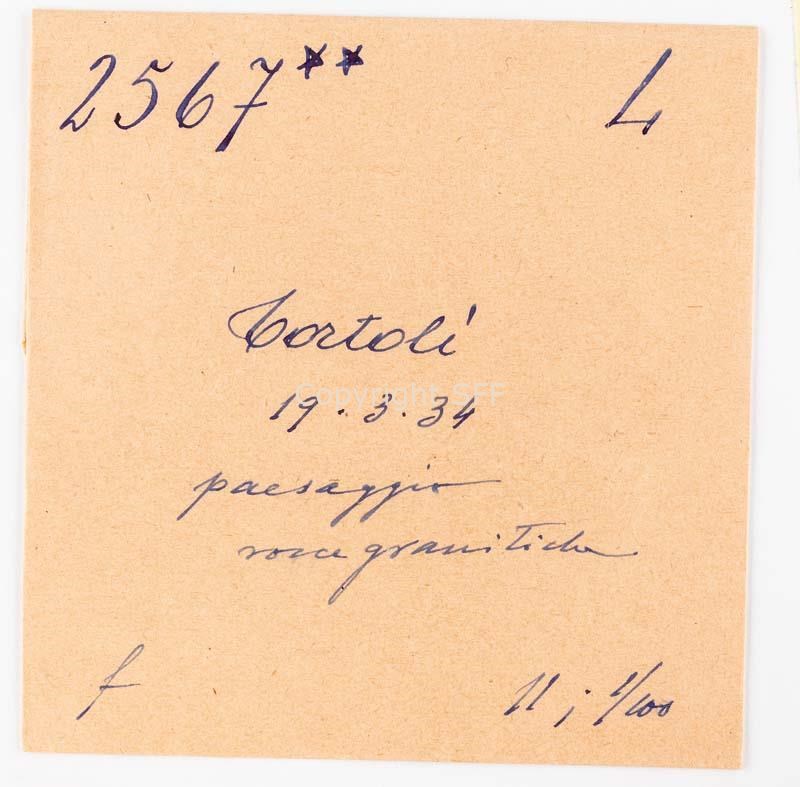 2567** L
Tortolì
Copyright SFF
19.3.34
paesaggio
rocce granitiche
f 11; 1/100